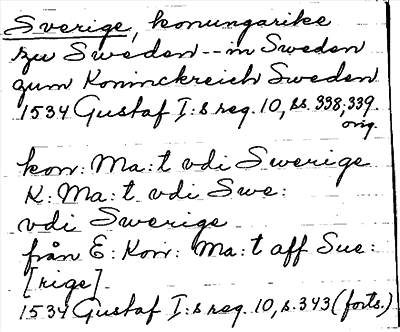 Sverige, konungarike
zu Sweden -- in Sweden
zum Koninckreich Sweden
1534 Gustaf I:s reg. 10, ss. 338, 339
orig.
kon: Ma:t vdi Swerige
K: Ma:t vdi Swe:
vdi Swerige
från E: Kon: Ma:t aff Sue:
[rige]
1534 Gustaf I:s reg. 10, s. 343 (forts.)